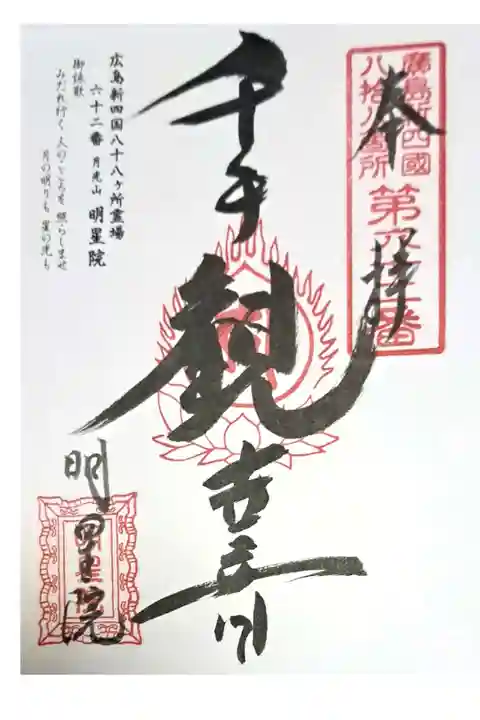 廣島新四國
八拾八箇所
第六拾二番
奉拝
千手観世音
明星院
広島新四国八十八ヶ所霊場
六十二番 月光山 明星院
御詠歌
みだれ行く 人のこころを 照らしませ
月の明りも 星の光も